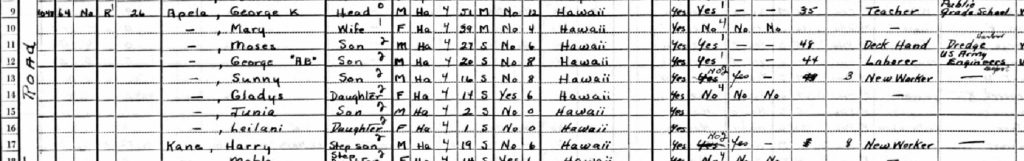 9 64 No R 26 Apela, George K Head 0 M Ha 4 51 M No 12 Hawaii Yes Yes 1 — — 35 Teacher Public Grade School
10 — , Mary Wife 1 F Ha 4 39 M No 4 Hawaii Yes No 4 No No
11 — , Moses Son 2 M Ha 4 27 S No 6 Hawaii Yes Yes 1 — — 48 Deck Hand Dredge
12 — , George "AB" Son 2 M Ha 4 20 S No 8 Hawaii Yes Yes — — 44 Laborer US Army Engineers
13 — , Sunny Son 2 M Ha 4 16 S No 8 Hawaii Yes No 2 Yes — 3 New Worker —
14 — , Gladys Daughter 2 F Ha 4 14 S Yes 6 Hawaii Yes No 4 No No —
15 — , Junia Son 2 M Ha 4 2 S No 0 Hawaii Yes
16 — , Leilani Daughter 2 F Ha 4 1 S No 0 Hawaii Yes
17 Kane, Harry Step son 2 M Ha 4 19 S No 6 Hawaii Yes No 2 Yes — 8 New Worker —
Road